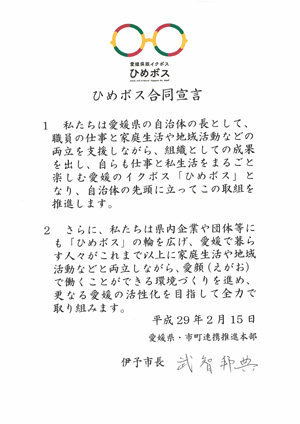 愛媛県版イクボス
ひめボス
ひめボス合同宣言
1　私たちは愛媛県の自治体の長として、
職員の仕事と家庭生活や地域活動などの
両立を支援しながら、組織としての成果
を出し、自らも仕事と私生活をまるごと
楽しむ愛媛のイクボス「ひめボス」と
なり、自治体の先頭に立ってこの取組を
推進します。
2　さらに、私たちは県内企業や団体等に
も「ひめボス」の輪を広げ、愛媛で暮ら
す人々がこれまで以上に家庭生活や地域
活動などと両立しながら、愛顔（えがお）
で働くことができる環境づくりを進め、
更なる愛媛の活性化を目指して全力で
取り組みます。
平成29年2月15日
愛媛県・市町連携推進本部
伊予市長　武智邦典